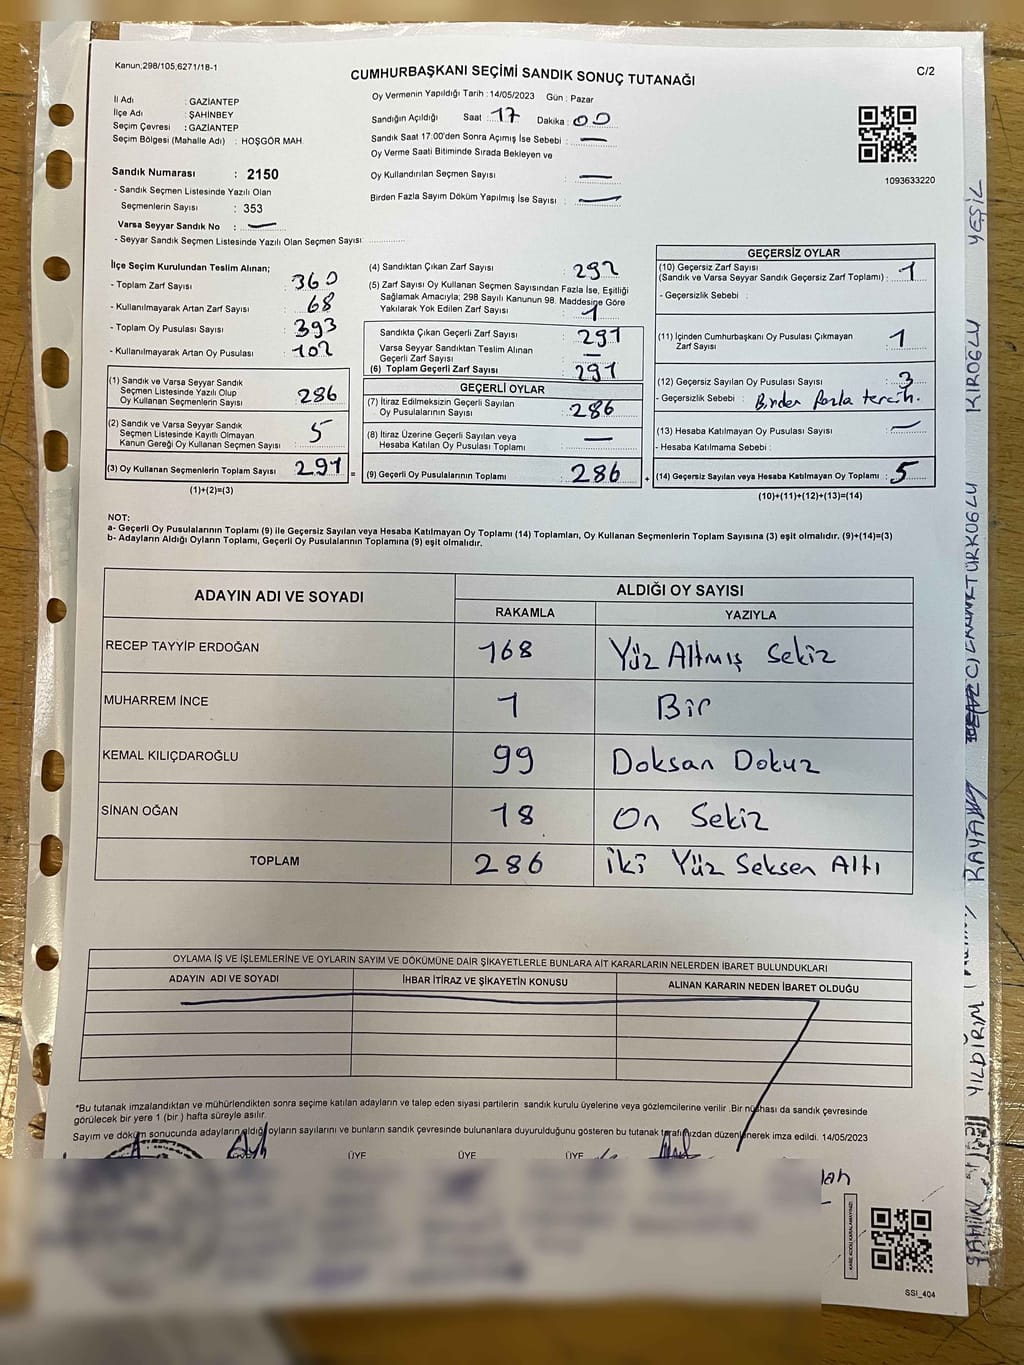 Kanun,298/105,6271/18-1
CUMHURBAŞKANI SEÇİMİ SANDIK SONUÇ TUTANAĞI
C/2
İl Adı : GAZİANTEP
İlçe Adı : ŞAHİNBEY
Seçim Çevresi : GAZİANTEP
Seçim Bölgesi (Mahalle Adı) : HOŞGÖR MAH.
Sandık Numarası : 2150
- Sandık Seçmen Listesinde Yazılı Olan
Seçmenlerin Sayısı : 353
Varsa Seyyar Sandık No : —
- Seyyar Sandık Seçmen Listesinde Yazılı Olan Seçmen Sayısı:
Oy Vermenin Yapıldığı Tarih : 14/05/2023 Gün : Pazar
Sandığın Açıldığı Saat : 17 Dakika : 00
Sandık Saat 17:00'den Sonra Açımış İse Sebebi : —
Oy Verme Saati Bitiminde Sırada Bekleyen ve
Oy Kullandırılan Seçmen Sayısı : —
Birden Fazla Sayım Döküm Yapılmış İse Sayısı : —
1093633220
İlçe Seçim Kurulundan Teslim Alınan;
- Toplam Zarf Sayısı : 360
- Kullanılmayarak Artan Zarf Sayısı : 68
- Toplam Oy Pusulası Sayısı : 393
- Kullanılmayarak Artan Oy Pusulası : 102
(1) Sandık ve Varsa Seyyar Sandık
Seçmen Listesinde Yazılı Olup
Oy Kullanan Seçmenlerin Sayısı : 286
(2) Sandık ve Varsa Seyyar Sandık
Seçmen Listesinde Kayıtlı Olmayan
Kanun Gereği Oy Kullanan Seçmen Sayısı : 5
(3) Oy Kullanan Seçmenlerin Toplam Sayısı : 291 =
(1)+(2)=(3)
(4) Sandıktan Çıkan Zarf Sayısı : 292
(5) Zarf Sayısı Oy Kullanan Seçmen Sayısından Fazla İse, Eşitliği
Sağlamak Amacıyla; 298 Sayılı Kanunun 98. Maddesine Göre
Yakılarak Yok Edilen Zarf Sayısı : 1
Sandıkta Çıkan Geçerli Zarf Sayısı : 291
Varsa Seyyar Sandıktan Teslim Alınan
Geçerli Zarf Sayısı : —
(6) Toplam Geçerli Zarf Sayısı : 291
GEÇERLİ OYLAR
(7) İtiraz Edilmeksizin Geçerli Sayılan
Oy Pusulalarının Sayısı : 286
(8) İtiraz Üzerine Geçerli Sayılan veya
Hesaba Katılan Oy Pusulası Toplamı : —
(9) Geçerli Oy Pusulalarının Toplamı : 286 +
GEÇERSİZ OYLAR
(10) Geçersiz Zarf Sayısı
(Sandık ve Varsa Seyyar Sandık Geçersiz Zarf Toplamı) : 1
- Geçersizlik Sebebi :
(11) İçinden Cumhurbaşkanı Oy Pusulası Çıkmayan
Zarf Sayısı : 1
(12) Geçersiz Sayılan Oy Pusulası Sayısı : 3
- Geçersizlik Sebebi : Birden fazla tercih.
(13) Hesaba Katılmayan Oy Pusulası Sayısı : —
- Hesaba Katılmama Sebebi :
(14) Geçersiz Sayılan veya Hesaba Katılmayan Oy Toplamı : 5
(10)+(11)+(12)+(13)=(14)
NOT:
a- Geçerli Oy Pusulalarının Toplamı (9) ile Geçersiz Sayılan veya Hesaba Katılmayan Oy Toplamı (14) Toplamları, Oy Kullanan Seçmenlerin Toplam Sayısına (3) eşit olmalıdır. (9)+(14)=(3)
b- Adayların Aldığı Oyların Toplamı, Geçerli Oy Pusulalarının Toplamına (9) eşit olmalıdır.
ADAYIN ADI VE SOYADI
ALDIĞI OY SAYISI
RAKAMLA YAZIYLA
RECEP TAYYİP ERDOĞAN 168 Yüz Altmış Sekiz
MUHARREM İNCE 1 Bir
KEMAL KILIÇDAROĞLU 99 Doksan Dokuz
SİNAN OĞAN 18 On Sekiz
TOPLAM 286 İki Yüz Seksen Altı
OYLAMA İŞ VE İŞLEMLERİNE VE OYLARIN SAYIM VE DÖKÜMÜNE DAİR ŞİKAYETLERLE BUNLARA AİT KARARLARIN NELERDEN İBARET BULUNDUKLARI
ADAYIN ADI VE SOYADI İHBAR İTİRAZ VE ŞİKAYETİN KONUSU ALINAN KARARIN NEDEN İBARET OLDUĞU
*Bu tutanak imzalandıktan ve mühürlendikten sonra seçime katılan adayların ve talep eden siyasi partilerin sandık kurulu üyelerine veya gözlemcilerine verilir .Bir nüshası da sandık çevresinde
görülecek bir yere 1 (bir ) hafta süreyle asılır.
Sayım ve döküm sonucunda adayların aldığı oyların sayılarını ve bunların sandık çevresinde bulunanlara duyurulduğunu gösteren bu tutanak tarafımızdan düzenlenerek imza edildi. 14/05/2023
ÜYE ÜYE ÜYE
SSI_404
YEŞİL
KIROĞLU
TÜRKOĞLU
YILDIRIM
ŞAHİN